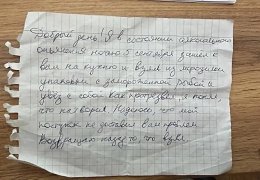 Добрый день! Я в состоянии алкогольного
опьянения ночью 3 сентября зашел к
вам на кухню и взял из морозилки
упаковки с замороженной рыбой и
увёз с собой. Как протрезвел, я понял,
что натворил. Надеюсь, что мой
поступок не доставил вам проблем.
Возвращаю назад то, что взял.